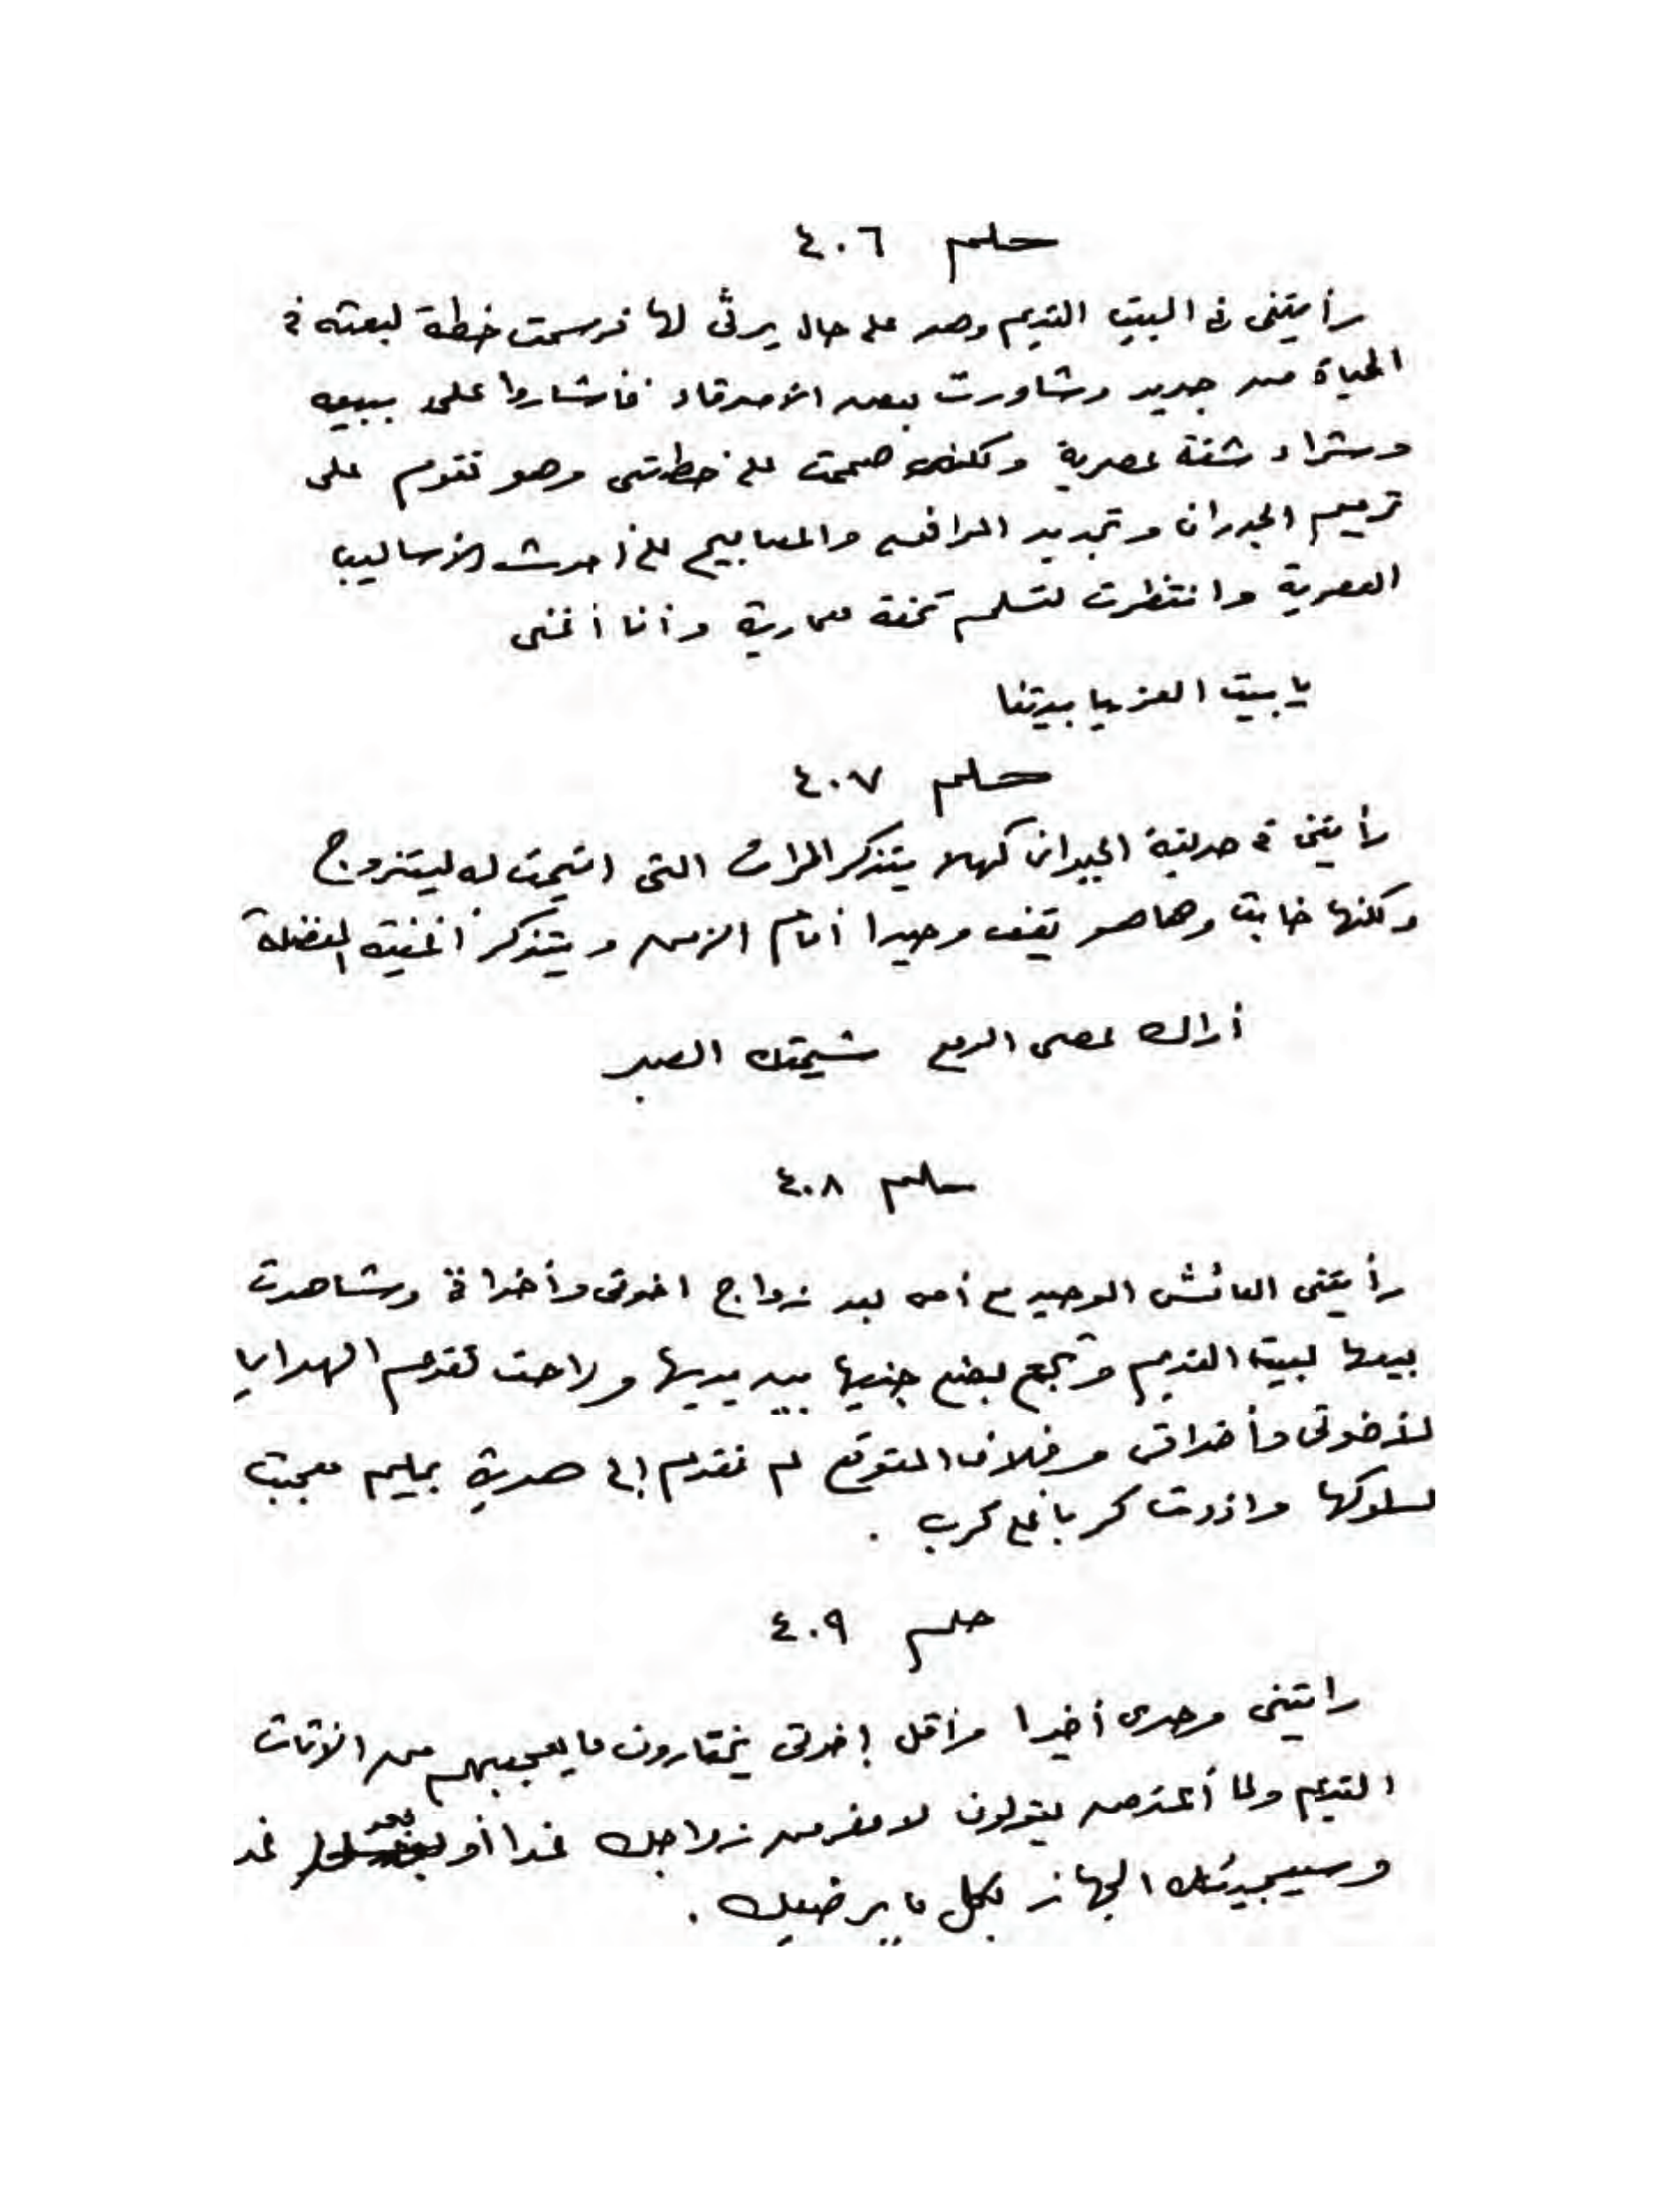 حلم ٤٠٦
رأيتنى فى البيت القديم وهو على حال يرثى لها فرسمت خطة لبعثه فى
الحياة من جديد وشاورت بعض الأصدقاء فأشاروا على ببيعه
وشراء شقة عصرية ولكنى صممت على خطتى وهو تقوم على
ترميم الجدران وتجديد المرافق والمصابيح على أحدث الأساليب
العصرية وانتظرت لتسلم تحفة معمارية وأنا أغنى
يا بيت العز يا بيتنا
حلم ٤٠٧
رأيتنى فى حديقة الميدان كهلا يتذكر المرات التى اتيحت له ليتزوج
ولكنها خابت وها هو يقف وحيدا أمام الزمن ويتذكر أغنيته المفضلة
أراك عصى الدمع شيمتك الصبر
حلم ٤٠٨
رأيتنى العائش الوحيد مع أمى بعد زواج اخوتى وأخواتى وشاهدت
بيعها لبيته القديم وتجمع بضع جنيها بين يديها وراحت تقدم الهدايا
لأخوتى وأخواتى وخلاف المتوقع لم تقدم إلى هدية بمليم فعجبت
لسلوكها وازددت كربا على كرب .
حلم ٤٠٩
رايتنى وحدى أخيرا وأقبل إخوتى يختارون ما يعجبهم من الاثاث
القديم ولما أعترض يقولون لا مفر من زواجك غدا أو بعد غد
وسيجيئك الجهاز بكل ما يرضيك .